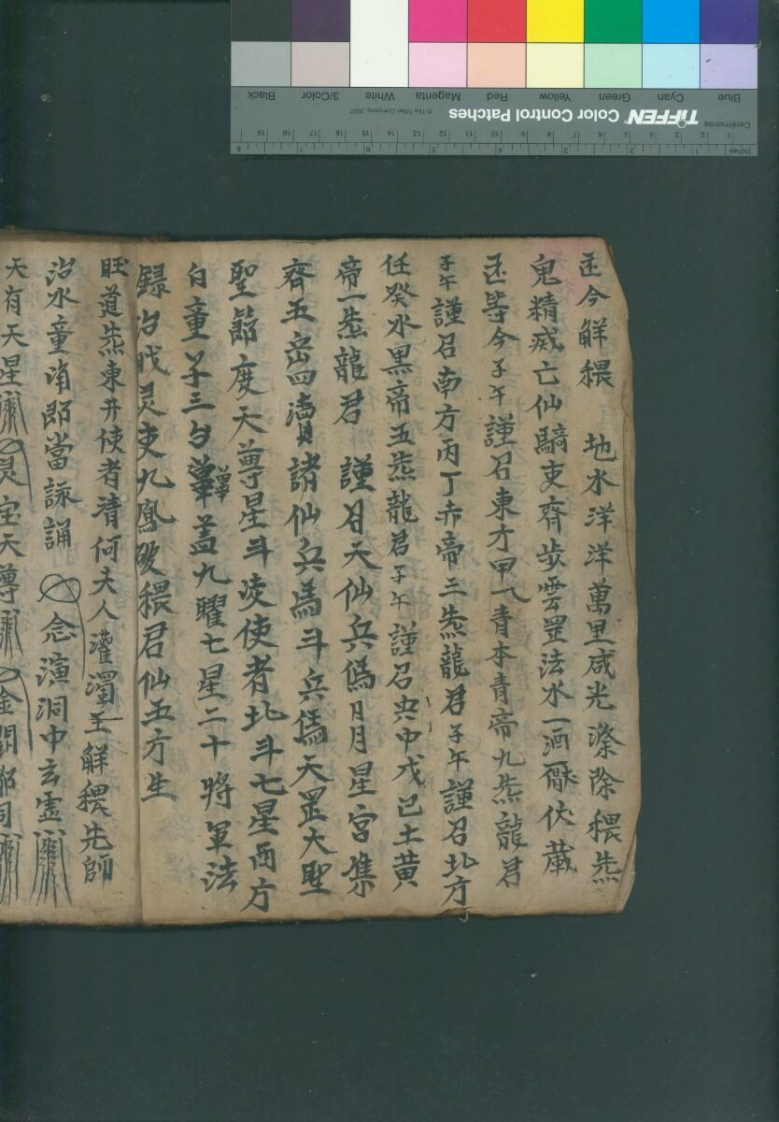 今解穢 地水洋洋萬里咸光滌除穢炁
鬼精滅亡仙騎吏齊步雲罡法水一洒厭伏藏
等今子午謹召東方甲乀青本青帝九炁龍君
子午謹召南方丙丁赤帝三炁龍君子午謹召北方
任癸水黑帝五炁龍君子午謹召央中戊己土黄
帝一炁龍君 謹召天仙兵馬日月星宮集
齊五岳四瀆諸仙兵馬斗兵馬天罡大聖
聖節度天尊星斗凌使者北斗七星西方
白童子三台華蓋九曜七星二十將軍法
録治灵吏九鳳破穢君仙五方生
旺道炁東井使者清何夫人灌濁王解穢先師
治水童即當詠誦 念演洞中玄虛
天有天星 灵宝天尊 金
Inches 1 2 3 4 5 6 7 8
Centimetres 1 2 3 4 5 6 7 8 9 10 11 12 13 14 15 16 17 18 19
TIFFEN Color Control Patches © The Tiffen Company, 2007
Blue Cyan Green Yellow Red Magenta White 3/Color Black